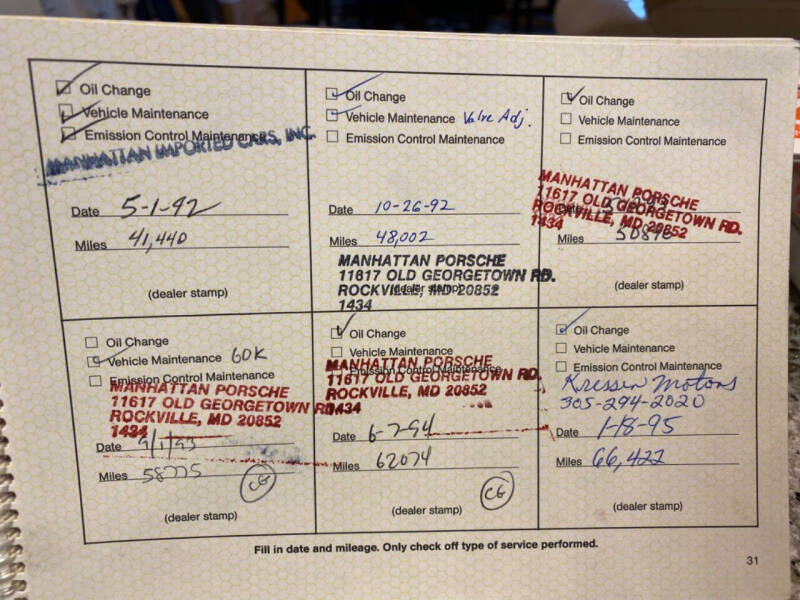 Oil Change
Vehicle Maintenance
Emission Control Maintenance
MANHATTAN IMPORTED CARS, INC.
Date 5-1-92
Miles 41,440
(dealer stamp)
Oil Change
Vehicle Maintenance Valve Adj.
Emission Control Maintenance
Date 10-26-92
Miles 48,002
MANHATTAN PORSCHE
11617 OLD GEORGETOWN RD.
ROCKVILLE, MD 20852
(dealer stamp)
1434
Oil Change
Vehicle Maintenance
Emission Control Maintenance
MANHATTAN PORSCHE
11617 OLD GEORGETOWN RD.
Date
ROCKVILLE, MD 20852
1434
Miles
(dealer stamp)
Oil Change
Vehicle Maintenance 60K
Emission Control Maintenance
MANHATTAN PORSCHE
11617 OLD GEORGETOWN RD.
ROCKVILLE, MD 20852
1434
Date 9/1/93
Miles 58775
CG
(dealer stamp)
Oil Change
Vehicle Maintenance
Emission Control Maintenance
MANHATTAN PORSCHE
11617 OLD GEORGETOWN RD.
ROCKVILLE, MD 20852
1434
Date 6-7-94
Miles 62074
CG
(dealer stamp)
Oil Change
Vehicle Maintenance
Emission Control Maintenance
Kressen Motors
305-294-2020
Date 1-18-95
Miles 66,422
(dealer stamp)
Fill in date and mileage. Only check off type of service performed.
31